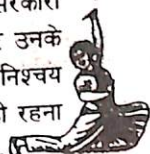 सरकारी
उनके
निश्चय
रहना